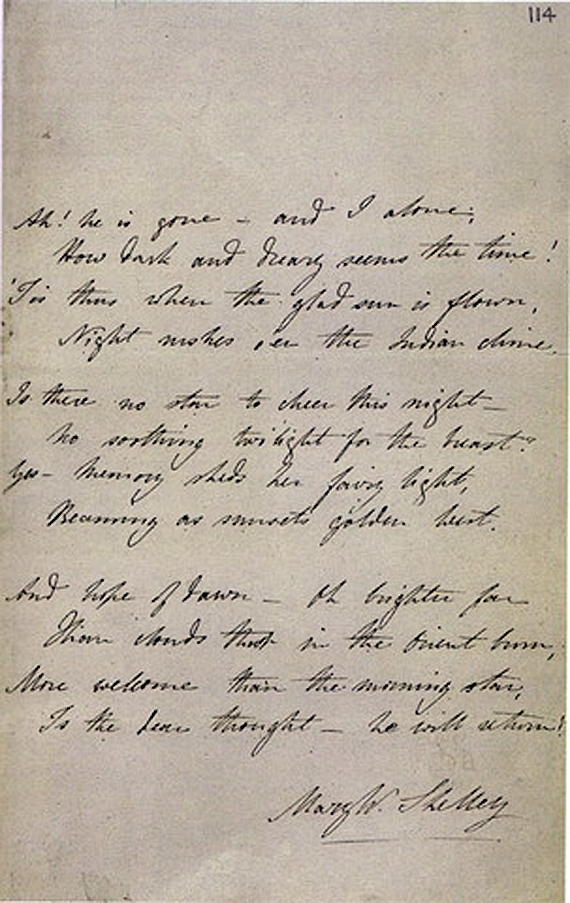 114
Ah! he is gone – and I alone;
How dark and dreary seems the time!
'Tis thus when the glad sun is flown,
Night rushes o'er the Indian clime.
Is there no star to cheer this night –
No soothing twilight for the breast?
Yes – Memory sheds her fairy light,
Beaming as sunsets golden west.
And hope of dawn – Oh brighter far
Than clouds that in the Orient burn;
More welcome than the morning star,
Is the dear thought – he will return!
Mary W. Shelley